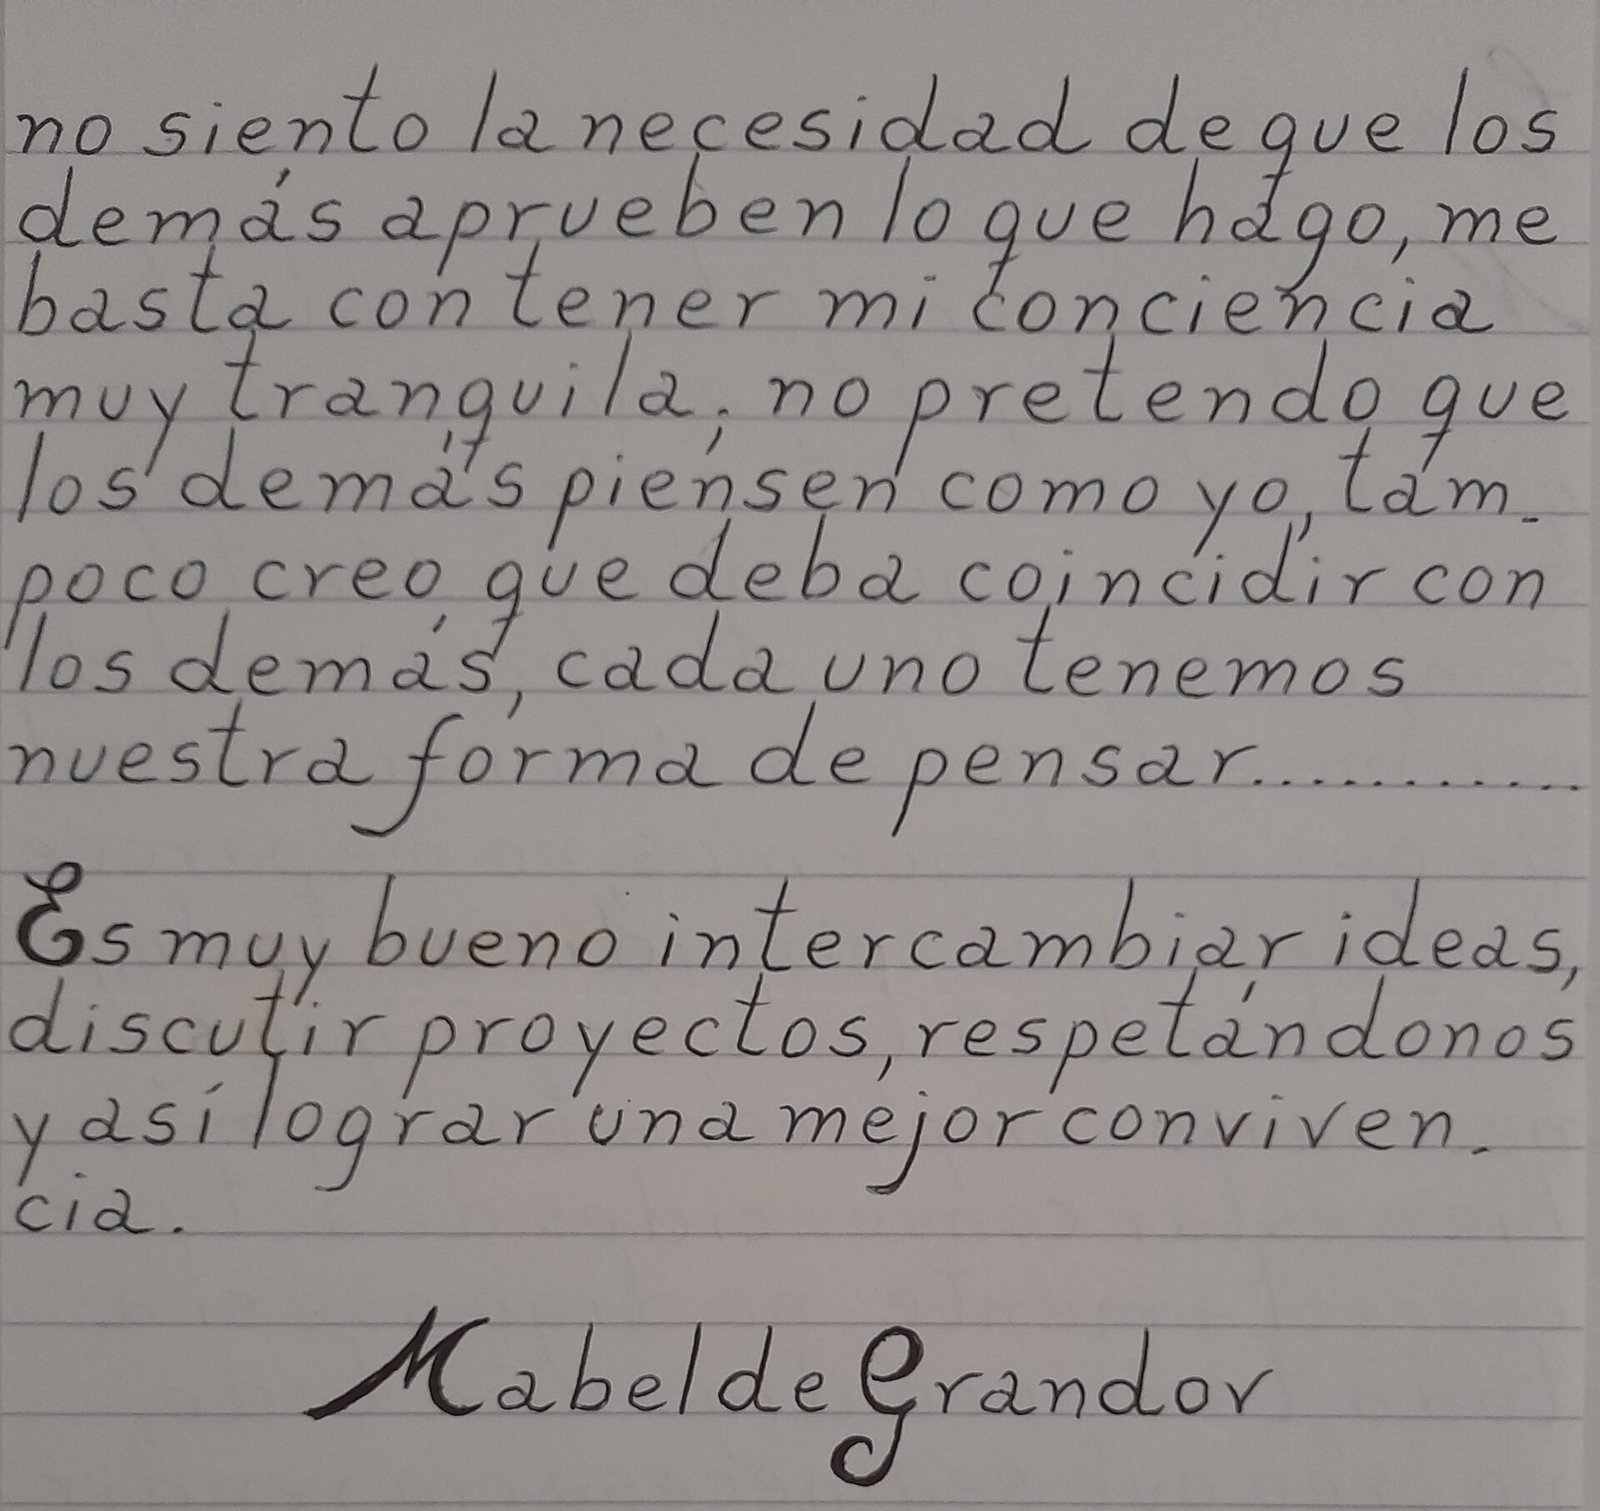 no siento la necesidad de que los
demás aprueben lo que hago, me
basta con tener mi conciencia
muy tranquila; no pretendo que
los demás piensen como yo, tam-
poco creo que deba coincidir con
los demás, cada uno tenemos
nuestra forma de pensar...........
Es muy bueno intercambiar ideas,
discutir proyectos, respetándonos
y así lograr una mejor conviven-
cia.
Mabel de Grandov